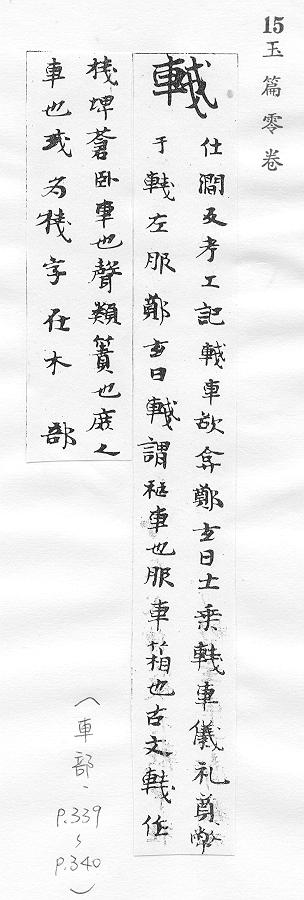 15
玉篇零卷
轏
仕澗反考工記轏車欲弇鄭玄曰士乗轏車儀礼奠幣
于轏左服鄭玄曰轏謂柩車也服車箱也古文轏作
棧埤蒼卧車也聲類簀也庋人
車也或為棧字在木部
（車部、
P.339
～
P.340
）